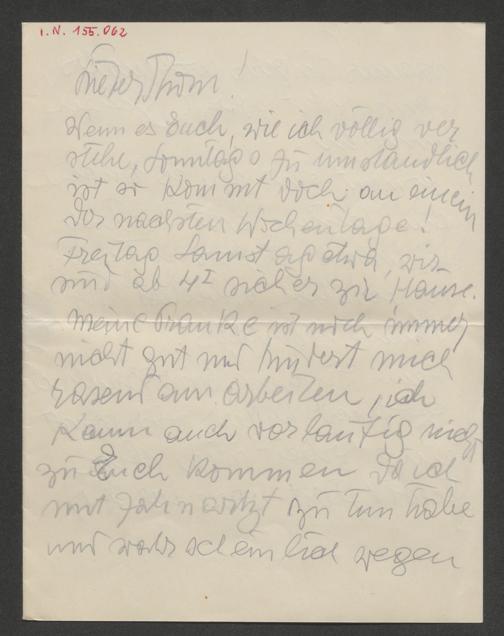 I.N. 155.062
Lieber Thom!
Wenn es Euch, wie ich völlig ver
stehe, Sonntags zu umständlich
ist so kommt doch an einem
der nächsten Wochentage!
Freitag Samstag etwa, wir
sind ab 4 sicher zu Hause.
Meine Pranke ist noch immer
nicht gut und hindert mich
rasend am arbeiten, ich
kann auch vorläufig nicht
zu Euch kommen da ich
mit Zahnartzt zu tun habe
und wahrscheinlich wegen